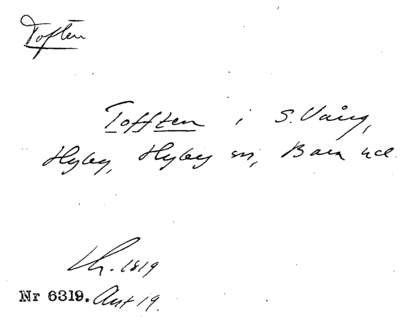 Toften
Tofften i S. Vång,
Hyby, Hyby sn, Bara hd.
Lh. 1819
Nr 6319. Akt 19.